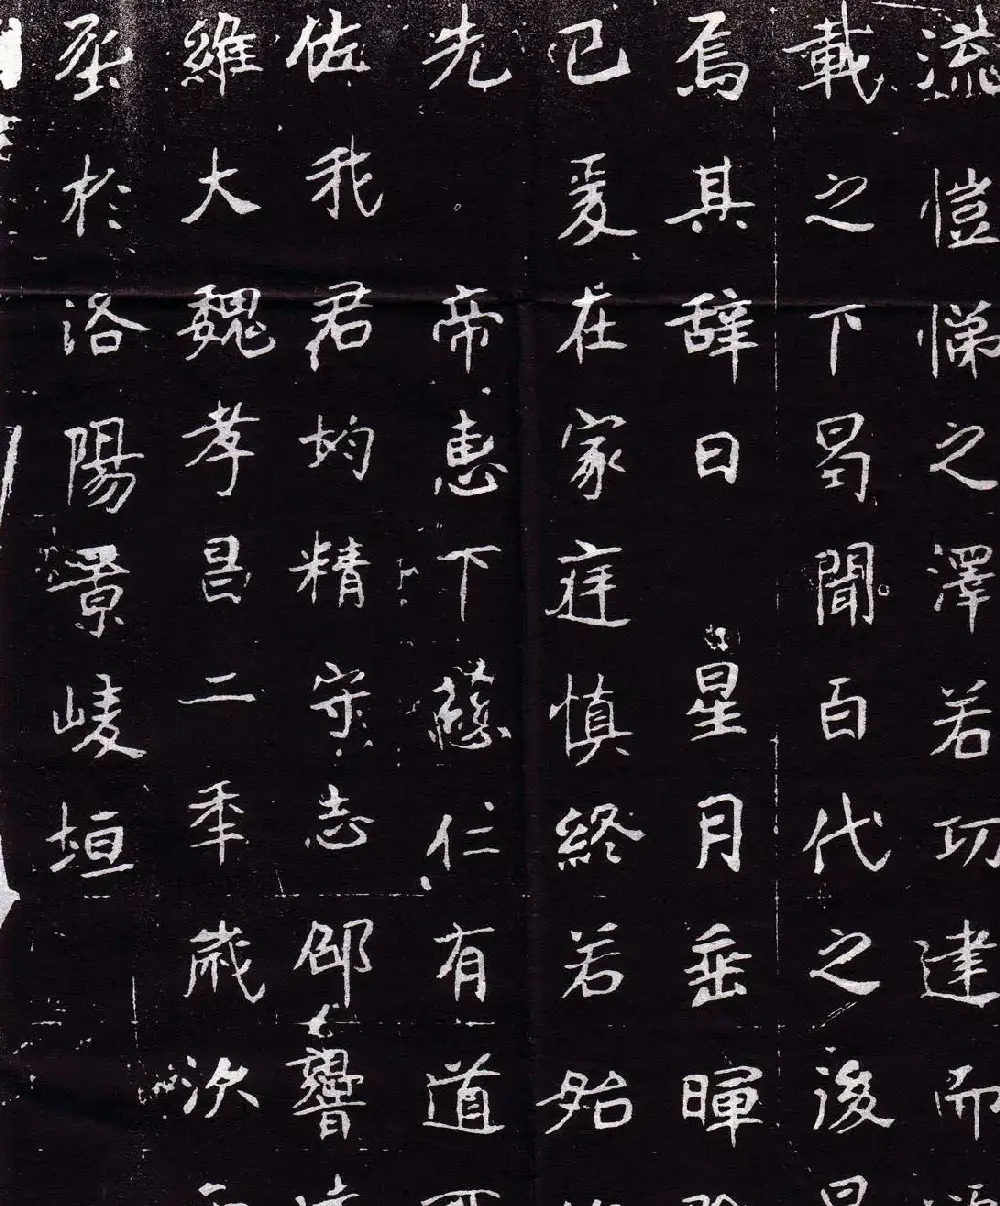 流愷悌之澤若功建而
載之下曷聞百代之後
焉其辞曰星月垂暉
已爰在家庭慎終若始
先帝惠下慈仁有道
佐我君均精守志邵響
維大魏孝昌二秊歲次
於洛陽景崚垣